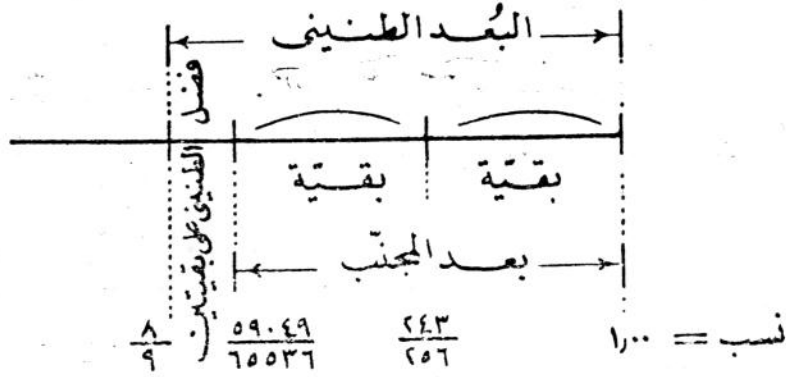 البُعد الطنينى
فضل الطنينى على بقيتين
بقـيّة بقـيّة
بعد المجنّب
نسب = ١,٠٠ ٢٤٣/٢٥٦ ٥٩٠٤٩/٦٥٥٣٦ ٨/٩